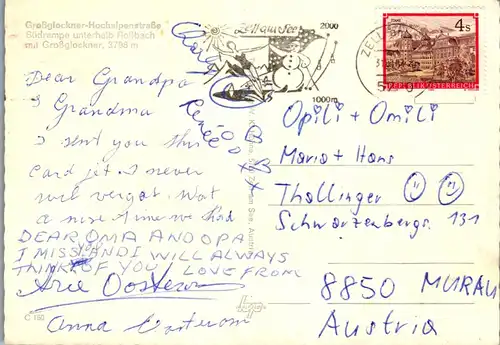 Großglockner-Hochalpenstraße
Südrampe unterhalb Roßbach
mit Großglockner, 3798 m
Zell am See
2000
1000 m
4s
REPUBLIK ÖSTERREICH
Dear Grandpa
& Grandma
I sent you this
card jet I never
will vergat. Wat
a nise time we had
DEAR OMA AND OPA
I MISS YOU AND I WILL ALWAYS
THINK OF YOU LOVE FROM
Anna
Renée
Opili + Omili
Maria + Hans
Thallinger
Schwarzenbergs. 131
8850 MURAU
Austria
C 150